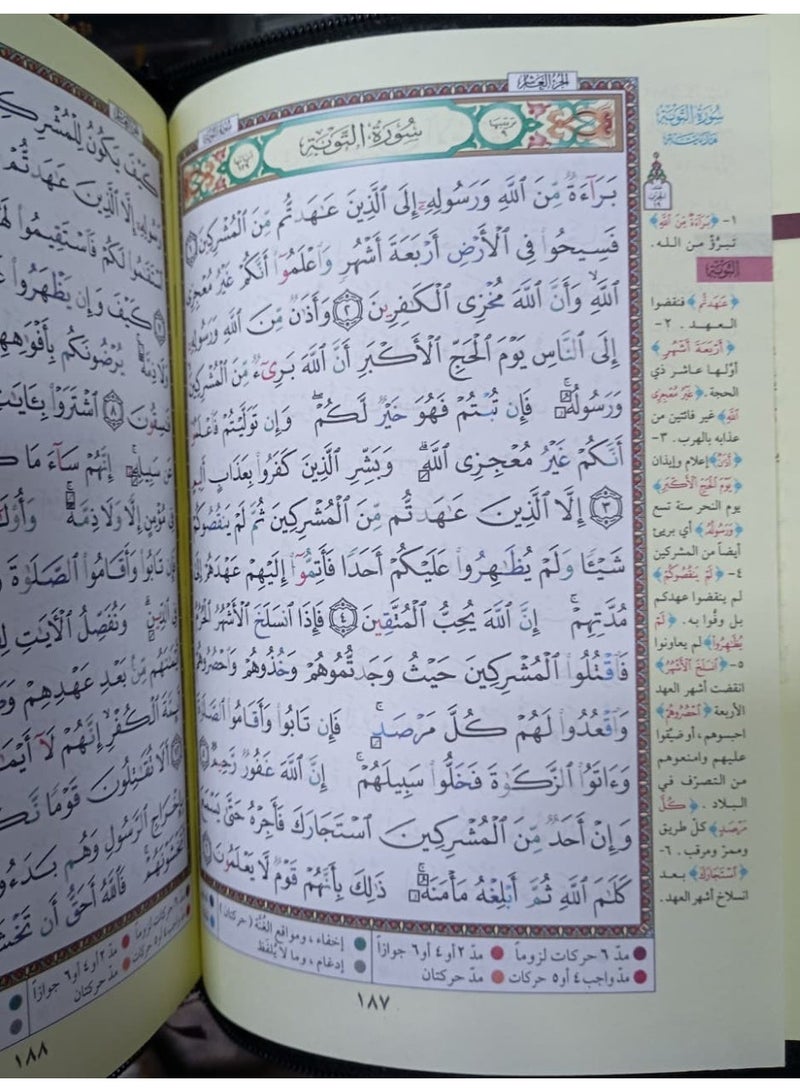 الجزء العاشر
سورة التوبة
ترتيبها ٩
سُورَةُ التَّوۡبَةِ
بَرَآءَةٞ مِّنَ ٱللَّهِ وَرَسُولِهِۦٓ إِلَى ٱلَّذِينَ عَٰهَدتُّم مِّنَ ٱلۡمُشۡرِكِينَ ١
فَسِيحُواْ فِي ٱلۡأَرۡضِ أَرۡبَعَةَ أَشۡهُرٖ وَٱعۡلَمُوٓاْ أَنَّكُمۡ غَيۡرُ مُعۡجِزِي
ٱللَّهِ وَأَنَّ ٱللَّهَ مُخۡزِي ٱلۡكَٰفِرِينَ ٢ وَأَذَٰنٞ مِّنَ ٱللَّهِ وَرَسُولِهِۦٓ
إِلَى ٱلنَّاسِ يَوۡمَ ٱلۡحَجِّ ٱلۡأَكۡبَرِ أَنَّ ٱللَّهَ بَرِيٓءٞ مِّنَ ٱلۡمُشۡرِكِينَ
وَرَسُولُهُۥۚ فَإِن تُبۡتُمۡ فَهُوَ خَيۡرٞ لَّكُمۡۖ وَإِن تَوَلَّيۡتُمۡ فَٱعۡلَمُوٓاْ
أَنَّكُمۡ غَيۡرُ مُعۡجِزِي ٱللَّهِۗ وَبَشِّرِ ٱلَّذِينَ كَفَرُواْ بِعَذَابٍ أَلِيمٍ
٣ إِلَّا ٱلَّذِينَ عَٰهَدتُّم مِّنَ ٱلۡمُشۡرِكِينَ ثُمَّ لَمۡ يَنقُصُوكُمۡ
شَيۡـٔٗا وَلَمۡ يُظَٰهِرُواْ عَلَيۡكُمۡ أَحَدٗا فَأَتِمُّوٓاْ إِلَيۡهِمۡ عَهۡدَهُمۡ إِلَىٰ
مُدَّتِهِمۡۚ إِنَّ ٱللَّهَ يُحِبُّ ٱلۡمُتَّقِينَ ٤ فَإِذَا ٱنسَلَخَ ٱلۡأَشۡهُرُ ٱلۡحُرُمُ
فَٱقۡتُلُواْ ٱلۡمُشۡرِكِينَ حَيۡثُ وَجَدتُّمُوهُمۡ وَخُذُوهُمۡ وَٱحۡصُرُوهُمۡ
وَٱقۡعُدُواْ لَهُمۡ كُلَّ مَرۡصَدٖۚ فَإِن تَابُواْ وَأَقَامُواْ ٱلصَّلَوٰةَ
وَءَاتَوُاْ ٱلزَّكَوٰةَ فَخَلُّواْ سَبِيلَهُمۡۚ إِنَّ ٱللَّهَ غَفُورٞ رَّحِيمٞ ٥
وَإِنۡ أَحَدٞ مِّنَ ٱلۡمُشۡرِكِينَ ٱسۡتَجَارَكَ فَأَجِرۡهُ حَتَّىٰ يَسۡمَعَ
كَلَٰمَ ٱللَّهِ ثُمَّ أَبۡلِغۡهُ مَأۡمَنَهُۥۚ ذَٰلِكَ بِأَنَّهُمۡ قَوۡمٞ لَّا يَعۡلَمُونَ ٦
مدّ ٦ حركات لزوماً مدّ ٢ أو ٤ أو ٦ جوازاً إخفاء، ومواقع الغُنَّة (حركتان)
مدّ واجب ٤ أو ٥ حركات مدّ حركتان إدغام، وما لا يُلفَظ
١٨٧
سورة التوبة
١- ﴿بَرَآءَةٌ مِّنَ اللَّهِ﴾
تبرُّؤ من الله.
التوبة
﴿عَهَدتُّم﴾ فنقضوا
العهد. ٢-
﴿أَرْبَعَةَ أَشْهُرٍ﴾
أوّلها عاشر ذي
الحجة. ﴿غَيْرُ مُعْجِزِى
اللَّهِ﴾ غير فائتين من
عذابه بالهرب. ٣-
﴿أَذَانٌ﴾ إعلام وإيذان
﴿يَوْمَ الْحَجِّ الْأَكْبَرِ﴾
يوم النحر سنة تسع
﴿وَرَسُولُهُ﴾ أي بريئ
أيضاً من المشركين
٤- ﴿لَمْ يَنقُصُوكُمْ﴾
لم ينقضوا عهدكم
بل وفّوا به. ﴿لَمْ
يُظَٰهِرُوا﴾ لم يعاونوا
٥- ﴿انسَلَخَ الْأَشْهُرُ﴾
انقضت أشهر العهد
الأربعة ﴿احْصُرُوهُمْ﴾
احبسوهم، أو ضيّقوا
عليهم وامنعوهم
من التصرّف في
البلاد. ﴿كُلَّ
مَرْصَدٍ﴾ كلّ طريق
وممرّ ومرقب. ٦-
﴿اسْتَجَارَكَ﴾ بعد
انسلاخ أشهر العهد.
كَيۡفَ يَكُونُ لِلۡمُشۡرِكِينَ
رَسُولِهِۦٓ إِلَّا ٱلَّذِينَ عَٰهَدتُّمۡ
ٱسۡتَقَٰمُواْ لَكُمۡ فَٱسۡتَقِيمُواْ لَهُمۡ
٧ كَيۡفَ وَإِن يَظۡهَرُواْ
وَلَا ذِمَّةٗۚ يُرۡضُونَكُم بِأَفۡوَٰهِهِمۡ
فَٰسِقُونَ ٨ ٱشۡتَرَوۡاْ بِـَٔايَٰتِ
عَن سَبِيلِهِۦٓۚ إِنَّهُمۡ سَآءَ مَا
فِي مُؤۡمِنٍ إِلّٗا وَلَا ذِمَّةٗۚ
فَإِن تَابُواْ وَأَقَامُواْ ٱلصَّلَوٰةَ
فِي ٱلدِّينِۗ وَنُفَصِّلُ ٱلۡأٓيَٰتِ
أَيۡمَٰنَهُم مِّنۢ بَعۡدِ عَهۡدِهِمۡ
أَئِمَّةَ ٱلۡكُفۡرِ إِنَّهُمۡ لَآ أَيۡمَٰنَ
أَلَا تُقَٰتِلُونَ قَوۡمٗا
بِإِخۡرَاجِ ٱلرَّسُولِ وَهُم بَدَءُو
أَتَخۡشَوۡنَهُمۡۚ فَٱللَّهُ أَحَقُّ أَن
مدّ ٢ أو ٤ أو ٦ جوازاً
مدّ حركتان
١٨٨